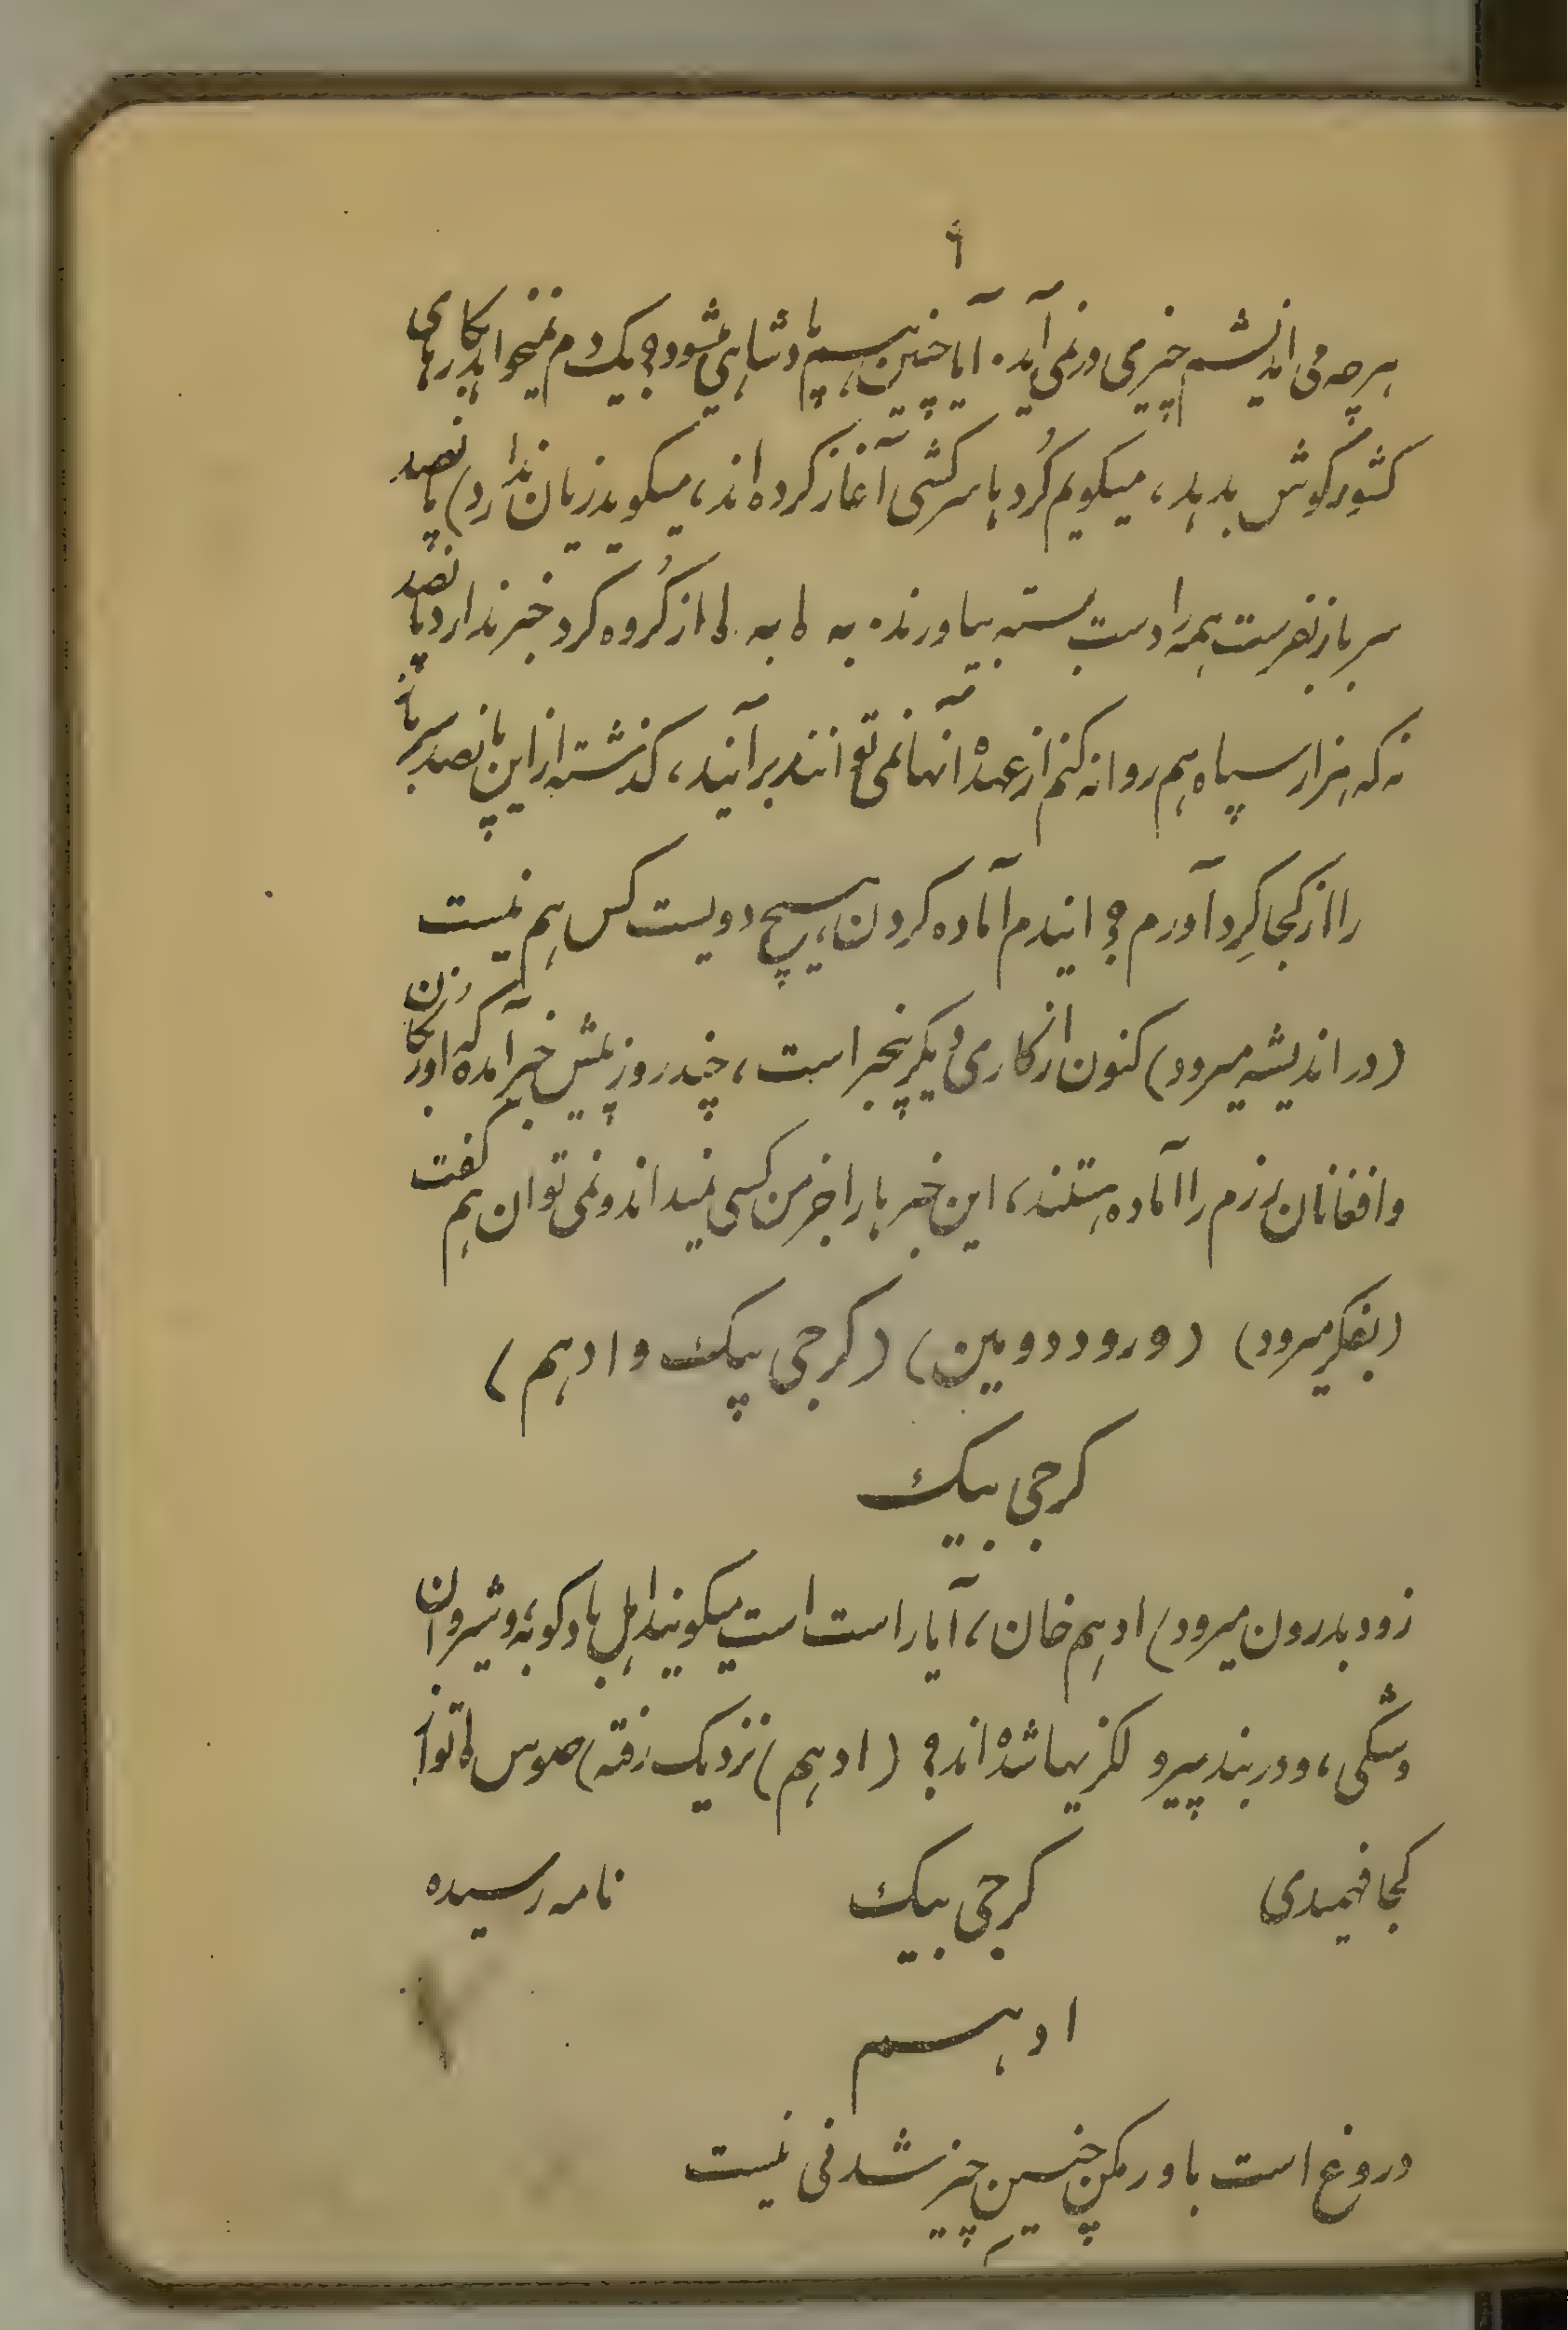 ۹
هرچه می اندیشم چیزی در نمی آید. آیا چنین هم پادشاهی میشود؟ یک دم نمیخواهد بکارهای
کشور گوش بدهد، میگویم کُردها سرکشی آغاز کرده اند، میگوید زیان ندارد) پانصد
سرباز بفرست همه را دست بسته بیاورند. به به از گُروه کرد خبر ندارد پانصد
نه که هزار سپاه هم روانه کنم از عهدهٔ آنها نمی توانند برآیند، گذشته از این پانصد سرباز
را از کجا گِرد آورم؟ ایندم آماده کردن، هیچ دویست کس هم نیست
(در اندیشه میرود) کنون از کاری دیگر بیخبر است، چند روز پیش خبر آمده که اوزبکان
و افغانان رزم را آماده هستند، این خبرها را جز من کسی نمیداند و نمی توان هم گفت
(بفکر میرود) (ورود دومین) (گرجی بیک و ادهم)
گرجی بیک
زود بدرون میرود) ادهم خان، آیا راست است میگویند اهل بادکوبه، و شیروان
و شکی، و دربند پیرو لگزیها شده اند؟ (ادهم) نزدیک رفته) تو از
کجا فهمیدی گرجی بیک نامه رسیده
ادهم
دروغ است باور مکن چنین چیز شدنی نیست